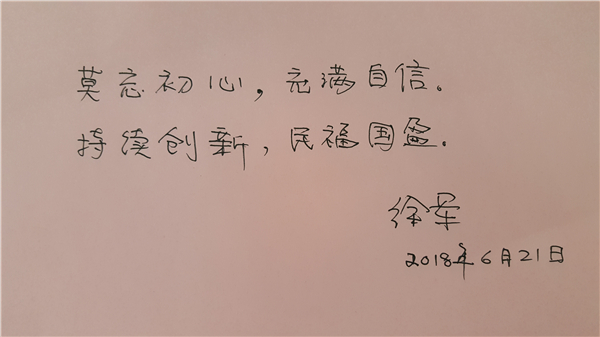 莫忘初心，充满自信。
持续创新，民福国盈。
徐军
2018年6月21日